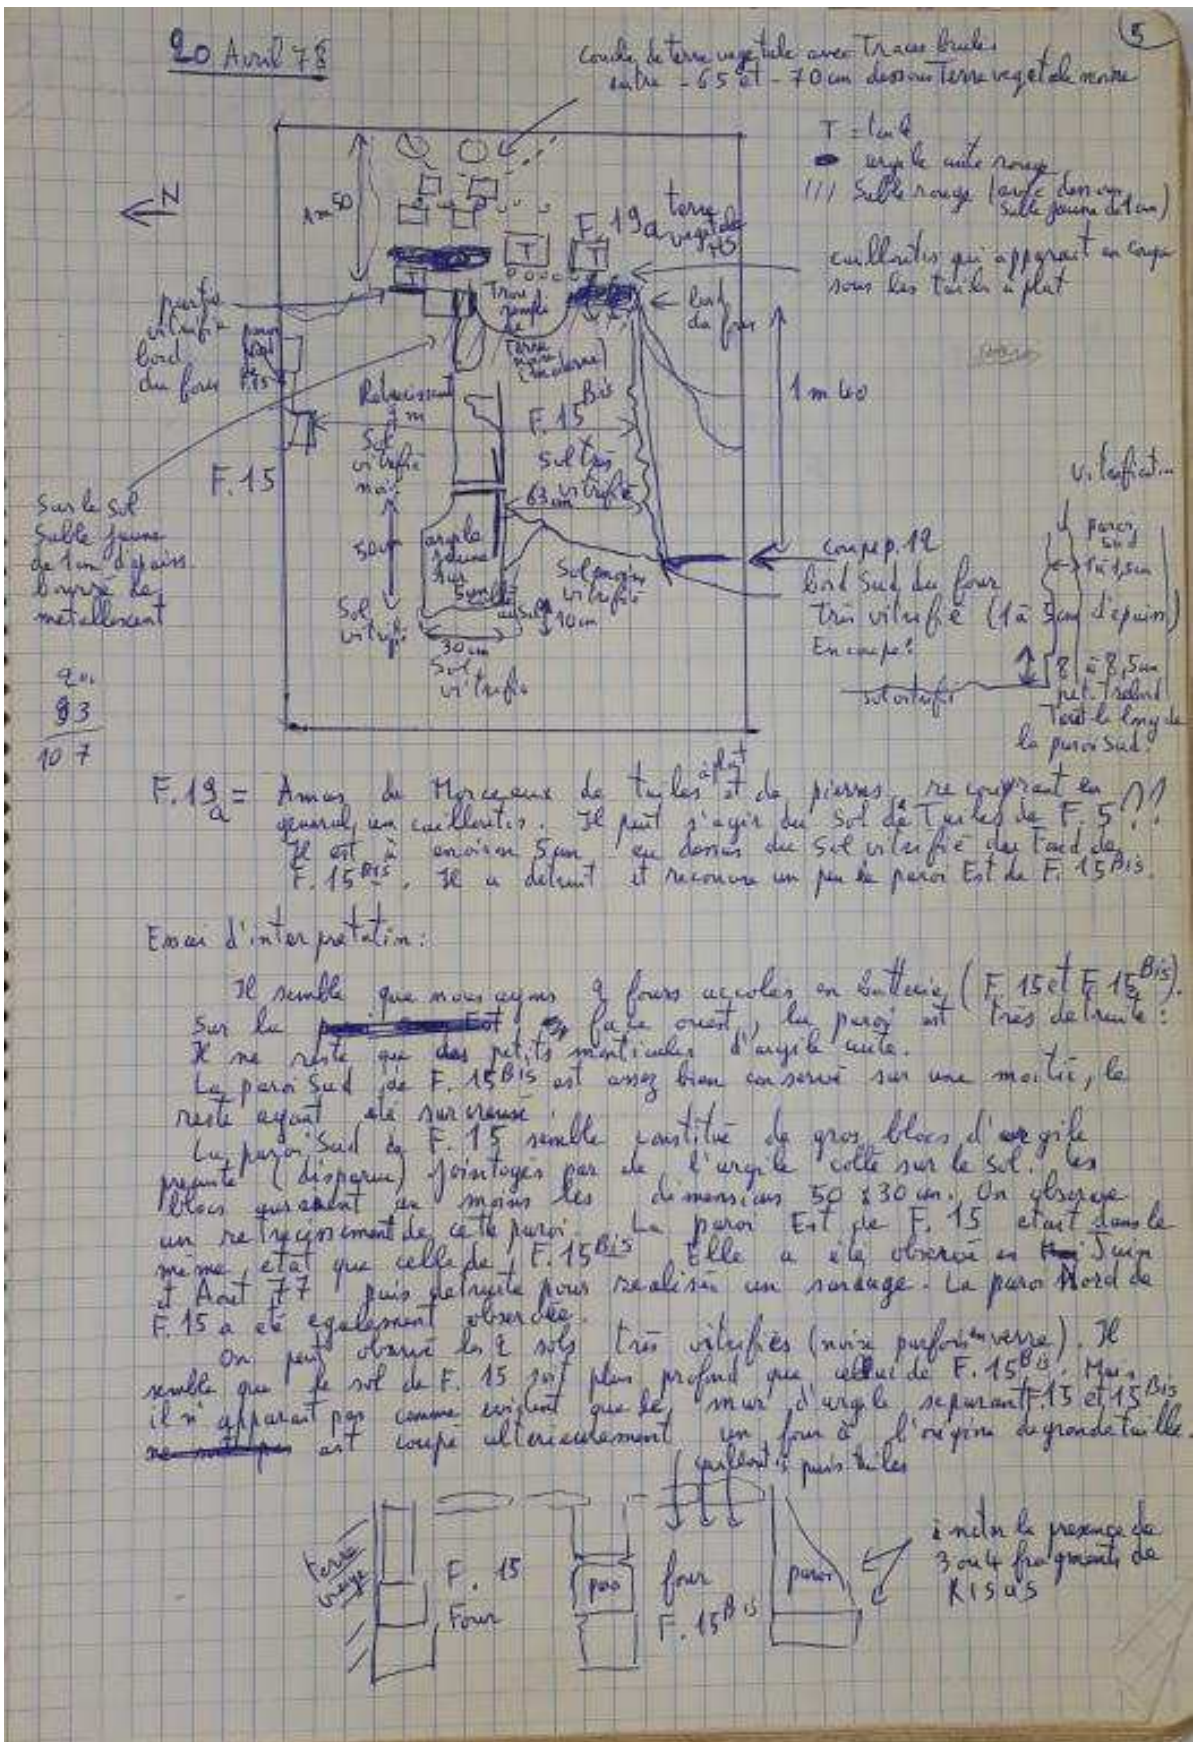 5
20 Avril 78
couche de terre vegetale avec traces brulés
entre -65 et -70 cm dessous Terre vegetale noire
T = tuile
argile cuite rouge
/// Sable rouge (avec dessous
sable jaune de 1 cm)
cailloutis qui apparait en coupe
sous les tuiles à plat
N
1 m 50
F. 19a
terre
vegetale
T
T
T
bord
du four
Trou
rempli
de
Terre
noire
(moderne)
partie
vitrifié
bord
du four
F.15
Retrecissement
1 m
F. 15 Bis
1 m 40
Sol
vitrifié
noir
Sol très
vitrifié
63 cm
F. 15
Sur le sol
Sable jaune
de 1 cm d'épaiss.
50 cm
argile
jaune
sur
Sol moins
vitrifié
10 cm
Sol
vitrifié
30 cm
Sol
vitrifié
coupe p. 12
bord Sud du four
Très vitrifié (1 à 5 cm d'épaiss)
En coupe :
Vitrification
paroi
sud
1 à 1,5 cm
8 à 8,5 cm
pet. rebord
Tout le long de
la paroi Sud.
sol vitrifié
20.
93
107
F. 19a = Amas de Morceaux de tuiles à plat et de pierres, recouvrant en
general, un cailloutis. Il peut s'agir du Sol de Tuiles de F. 5 ??
Il est à environ 5 cm au dessus du Sol vitrifié du fond de
F. 15 Bis. Il a detruit et recouvre un peu la paroi Est de F. 15 Bis.
Essai d'interpretation :
Il semble que nous ayons 2 fours accolés en batterie (F. 15 et F. 15 Bis).
Sur la face ouest, la paroi est très detruite :
Il ne reste que des petits monticules d'argile cuite.
La paroi Sud de F. 15 Bis est assez bien conservé sur une moitié, le
reste ayant été surcreusé.
La paroi Sud de F. 15 semble constitué de gros blocs d'argile
(disparue) jointoyés par de l'argile collé sur le sol. Les
blocs auraient au moins les dimensions 50 x 30 cm. On observe
un retrecissement de cette paroi. La paroi Est de F. 15 etait dans le
même etat que celle de F. 15 Bis. Elle a été observé en Juin
et Aout 77 puis detruite pour realiser un sondage. La paroi Nord de
F. 15 a été egalement observée.
On peut observé les 2 sols très vitrifiés (noire parfois en verre). Il
semble que le sol de F. 15 soit plus profond que celui de F. 15 Bis. Mais
il n'apparait pas comme evident que le mur d'argile separant F. 15 et 15 Bis
ait coupé ulterieurement un four à l'origine de grande taille.
cailloutis puis tuiles
Terre
vierge
F. 15
Four
paroi
four
F. 15 Bis
paroi
à noter la presence de
3 ou 4 fragments de
Kisas